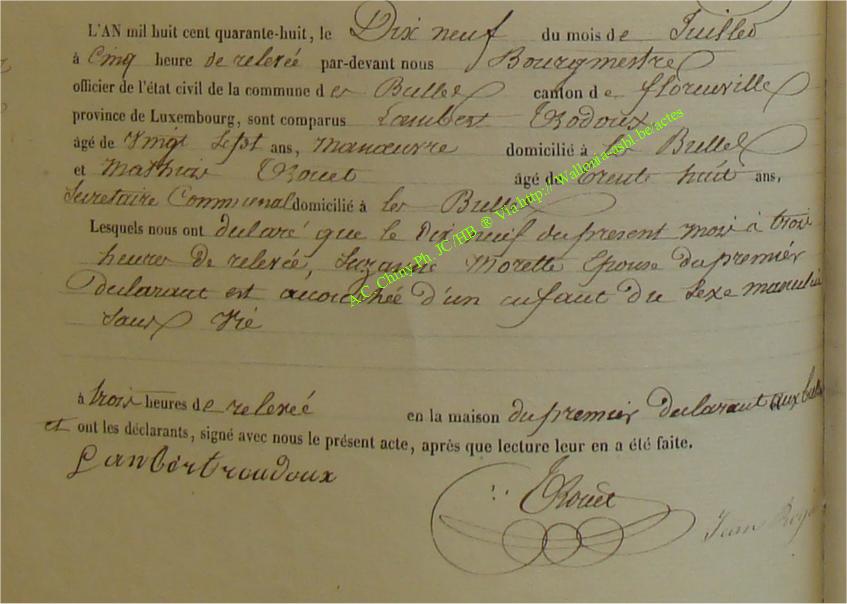 L'AN mil huit cent quarante-huit, le Dix neuf du mois de Juillet
à Cinq heure de relevée par-devant nous Bourgmestre
officier de l'état civil de la commune des Bulles canton de florenville
province de Luxembourg, sont comparus Lambert Trodoux
âgé de Vingt Sept ans, manœuvre domicilié à les Bulles
et Mathias Trouet âgé de trente huit ans,
Secretaire Communal domicilié à les Bulles
Lesquels nous ont declaré que le dix neuf du present mois à trois
heures de relevée, Suzanne Morette Epouse du premier
declarant est accouchée d'un enfant du Sexe masculin
Sans Vié
à trois heures de relevée en la maison du premier declarant aux bulles
et ont les déclarants, signé avec nous le présent acte, après que lecture leur en a été faite.
Lanbertroudoux
Trouet
Jean
A.C. Chiny Ph. JC / HB ® Via http://Wallonia-asbl.be/actes